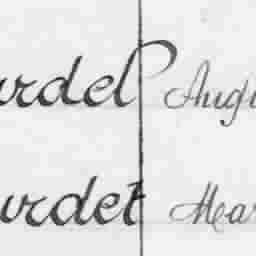 urdel Augu
urdet Mar